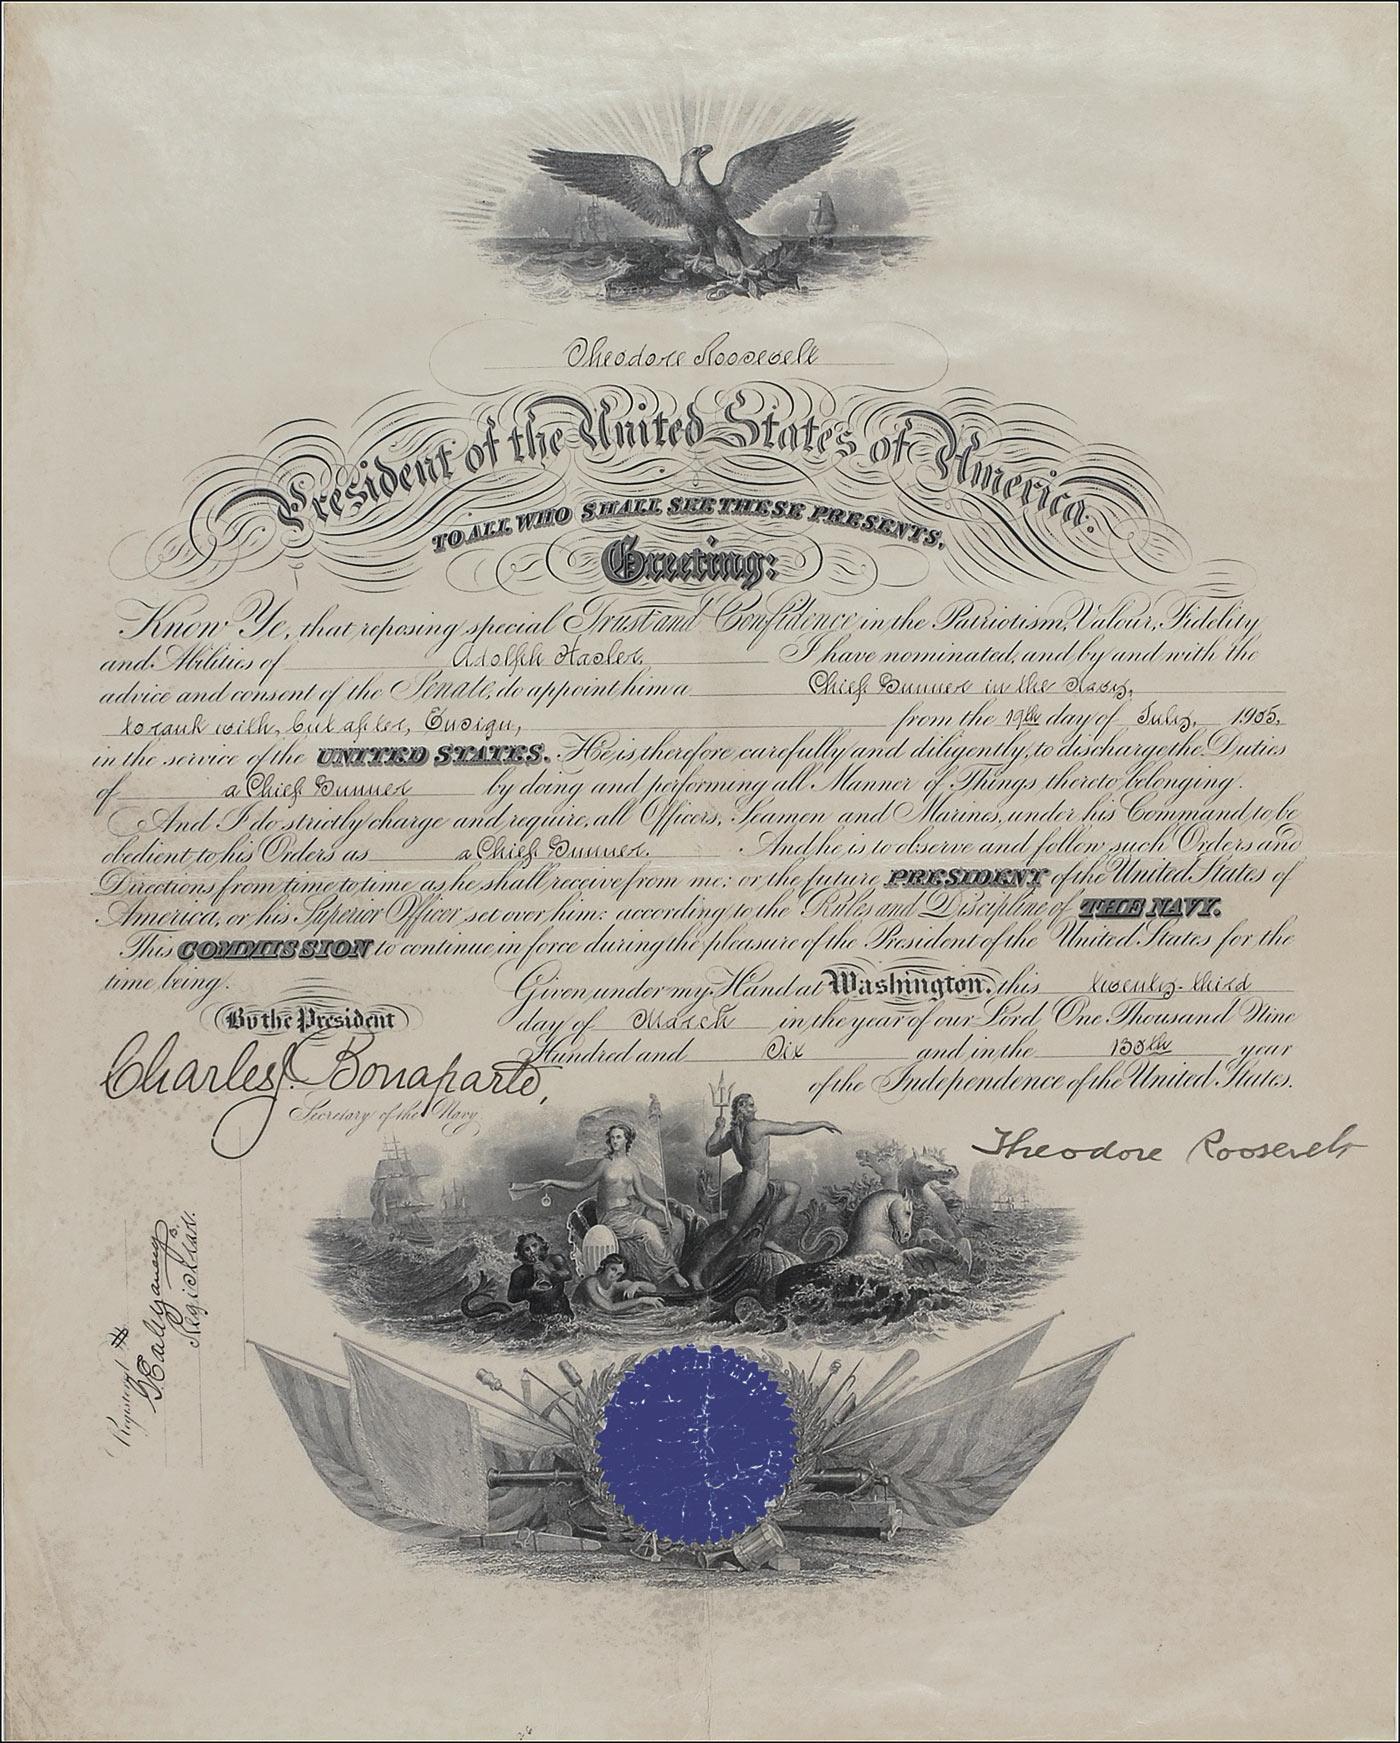 Theodore Roosevelt
President of the United States of America.
TO ALL WHO SHALL SEE THESE PRESENTS,
Greeting:
Know Ye, that reposing special Trust and Confidence in the Patriotism, Valour, Fidelity
and Abilities of Adolph Hasler, I have nominated, and by and with the
advice and consent of the Senate, do appoint him a Chief Gunner in the Navy,
to rank with, but after, Ensign, from the 19th day of July, 1905,
in the service of the UNITED STATES. He is therefore carefully and diligently, to discharge the Duties
of a Chief Gunner by doing and performing all Manner of Things thereto belonging.
And I do strictly charge and require, all Officers, Seamen and Marines, under his Command to be
obedient to his Orders as a Chief Gunner. And he is to observe and follow such Orders and
Directions from time to time as he shall receive from me: or the future PRESIDENT of the United States of
America, or his Superior Officer set over him: according to the Rules and Discipline of THE NAVY.
This COMMISSION to continue in force during the pleasure of the President of the United States for the
time being.
Given under my Hand at Washington, this twenty-third
day of March in the year of our Lord One Thousand Nine
Hundred and Six and in the 130th year
of the Independence of the United States.
By the President
Charles J. Bonaparte,
Secretary of the Navy
Theodore Roosevelt
Registered #
Registrar.
26